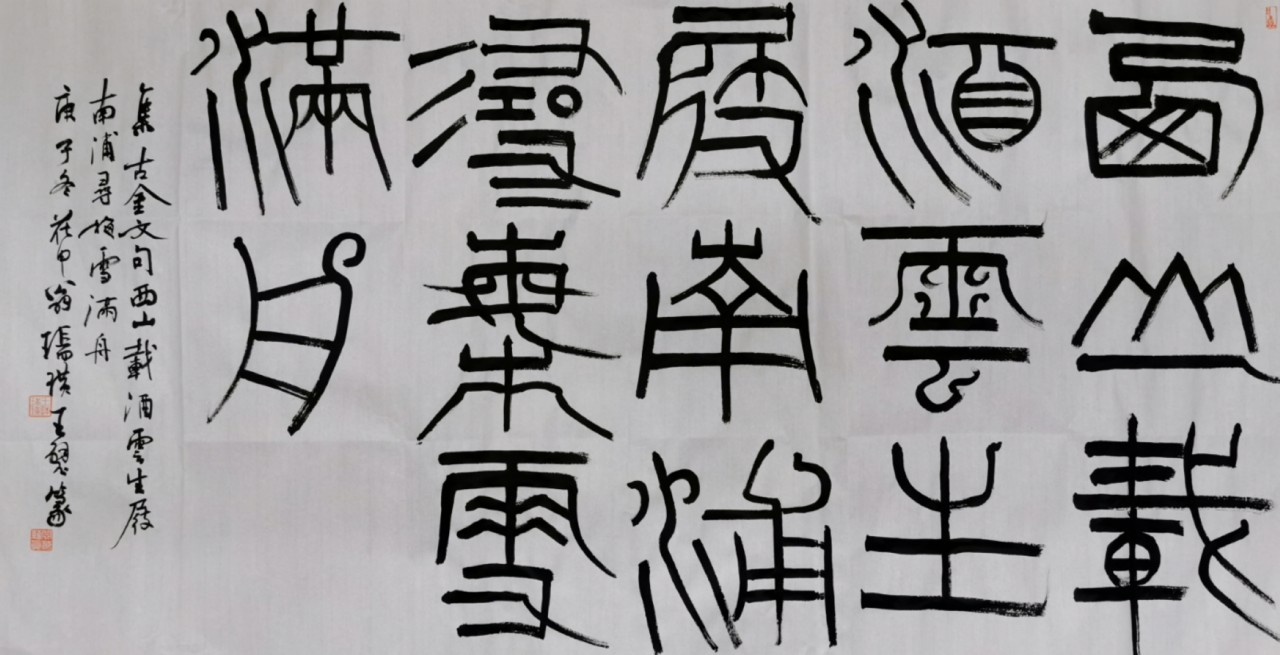 西山載
酒雲生
屐南浦
尋某雪
滿舟
集古金文句西山載酒雲生屐
南浦尋梅雪滿舟
庚子冬花甲翁瑞琪王
篆